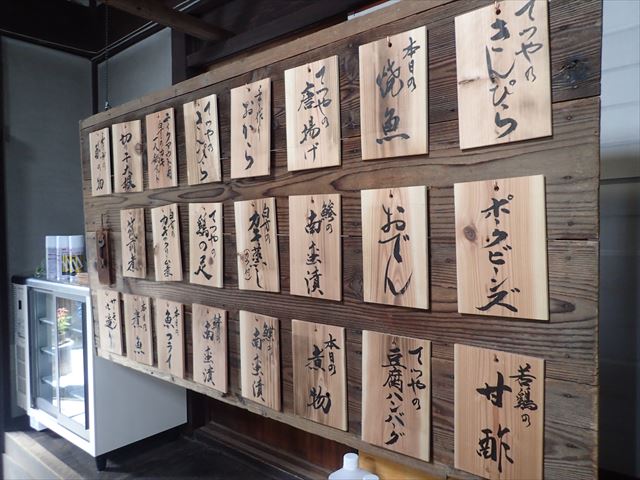 てつやの
きんぴら
本日の
焼魚
てつやの
唐揚げ
手作り
おから
てつやの
きんぴら
切干大根
ポークビーンズ
おでん
鯵の
南蛮漬
てつやの
鶏の足
若鶏の
甘酢
てつやの
豆腐ハンバーグ
本日の
煮物
鯵の
南蛮漬
鯵の
南蛮漬
本日の
魚フライ
本日の
煮魚